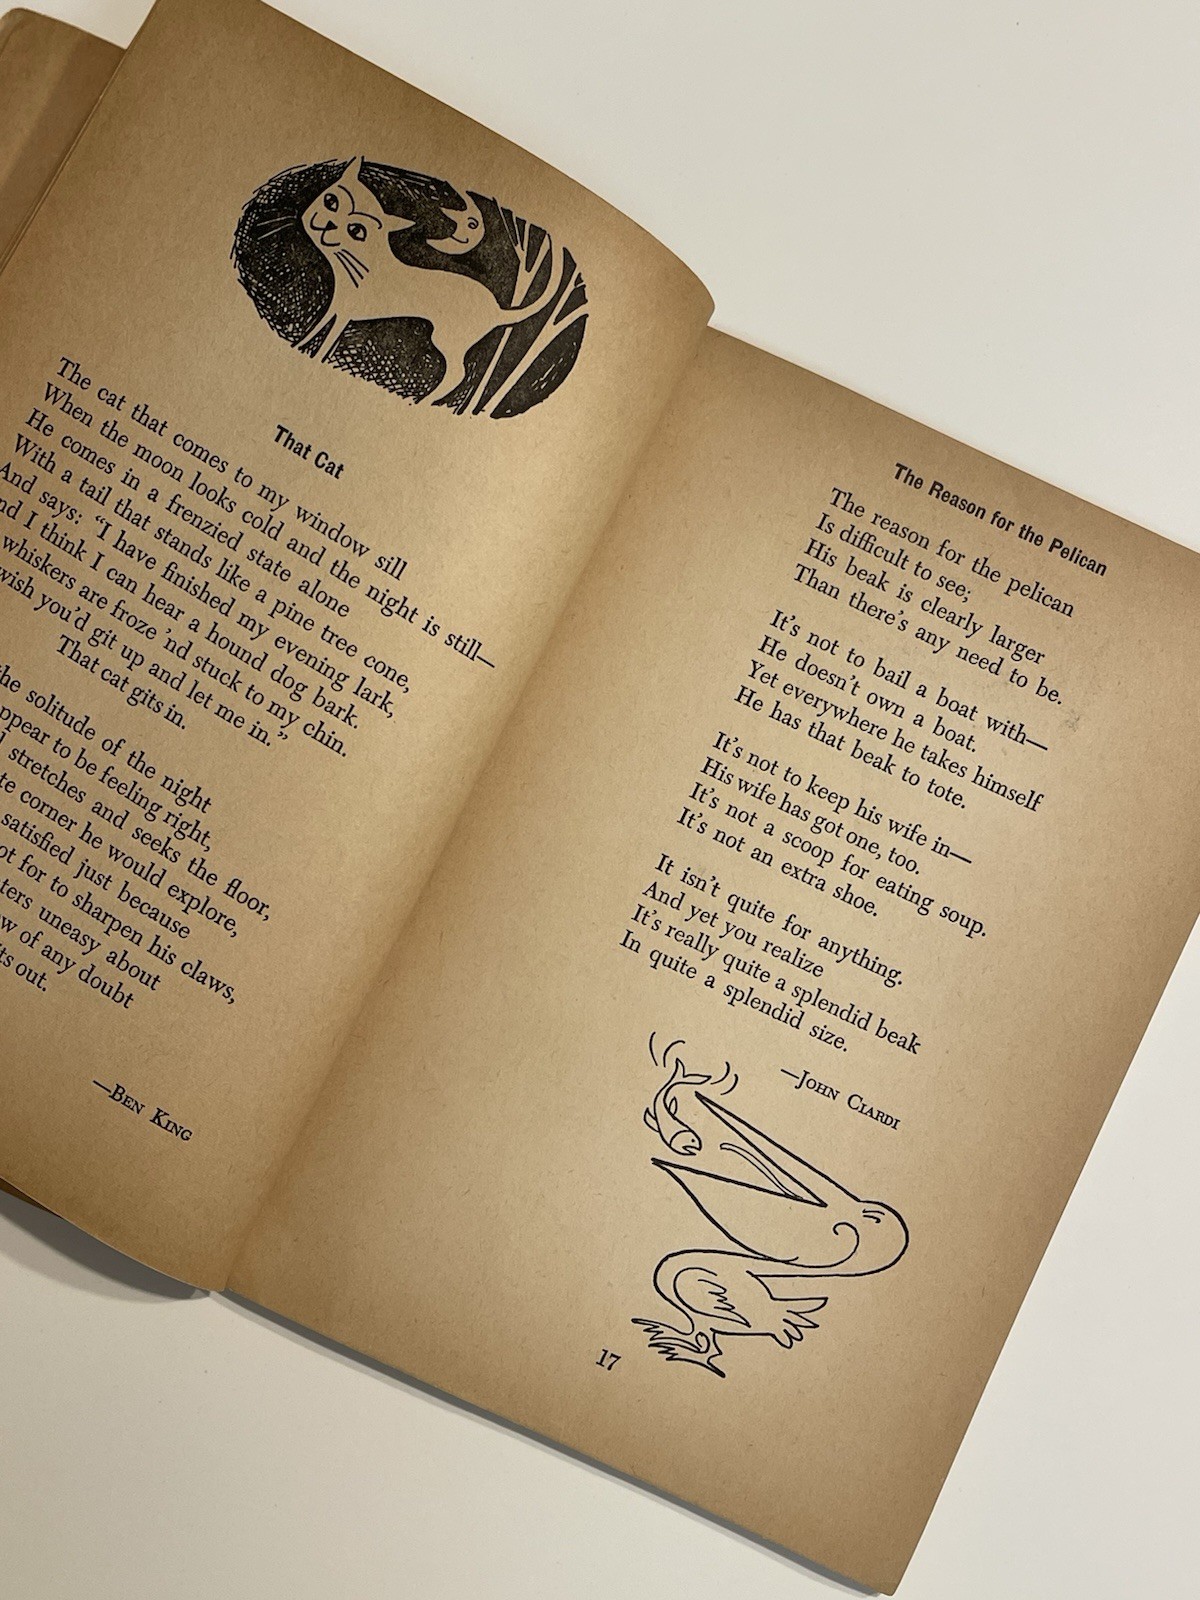 That Cat
The cat that comes to my window sill
When the moon looks cold and the night is still—
He comes in a frenzied state alone
With a tail that stands like a pine tree cone,
And says: “I have finished my evening lark,
nd I think I can hear a hound dog bark.
whiskers are froze ’nd stuck to my chin.
wish you’d git up and let me in.”
That cat gits in.
the solitude of the night
ppear to be feeling right,
stretches and seeks the floor,
te corner he would explore,
satisfied just because
ot for to sharpen his claws,
ters uneasy about
w of any doubt
ts out.
—BEN KING
The Reason for the Pelican
The reason for the pelican
Is difficult to see;
His beak is clearly larger
Than there’s any need to be.
It’s not to bail a boat with—
He doesn’t own a boat.
Yet everywhere he takes himself
He has that beak to tote.
It’s not to keep his wife in—
His wife has got one, too.
It’s not a scoop for eating soup.
It’s not an extra shoe.
It isn’t quite for anything.
And yet you realize
It’s really quite a splendid beak
In quite a splendid size.
—JOHN CIARDI
17